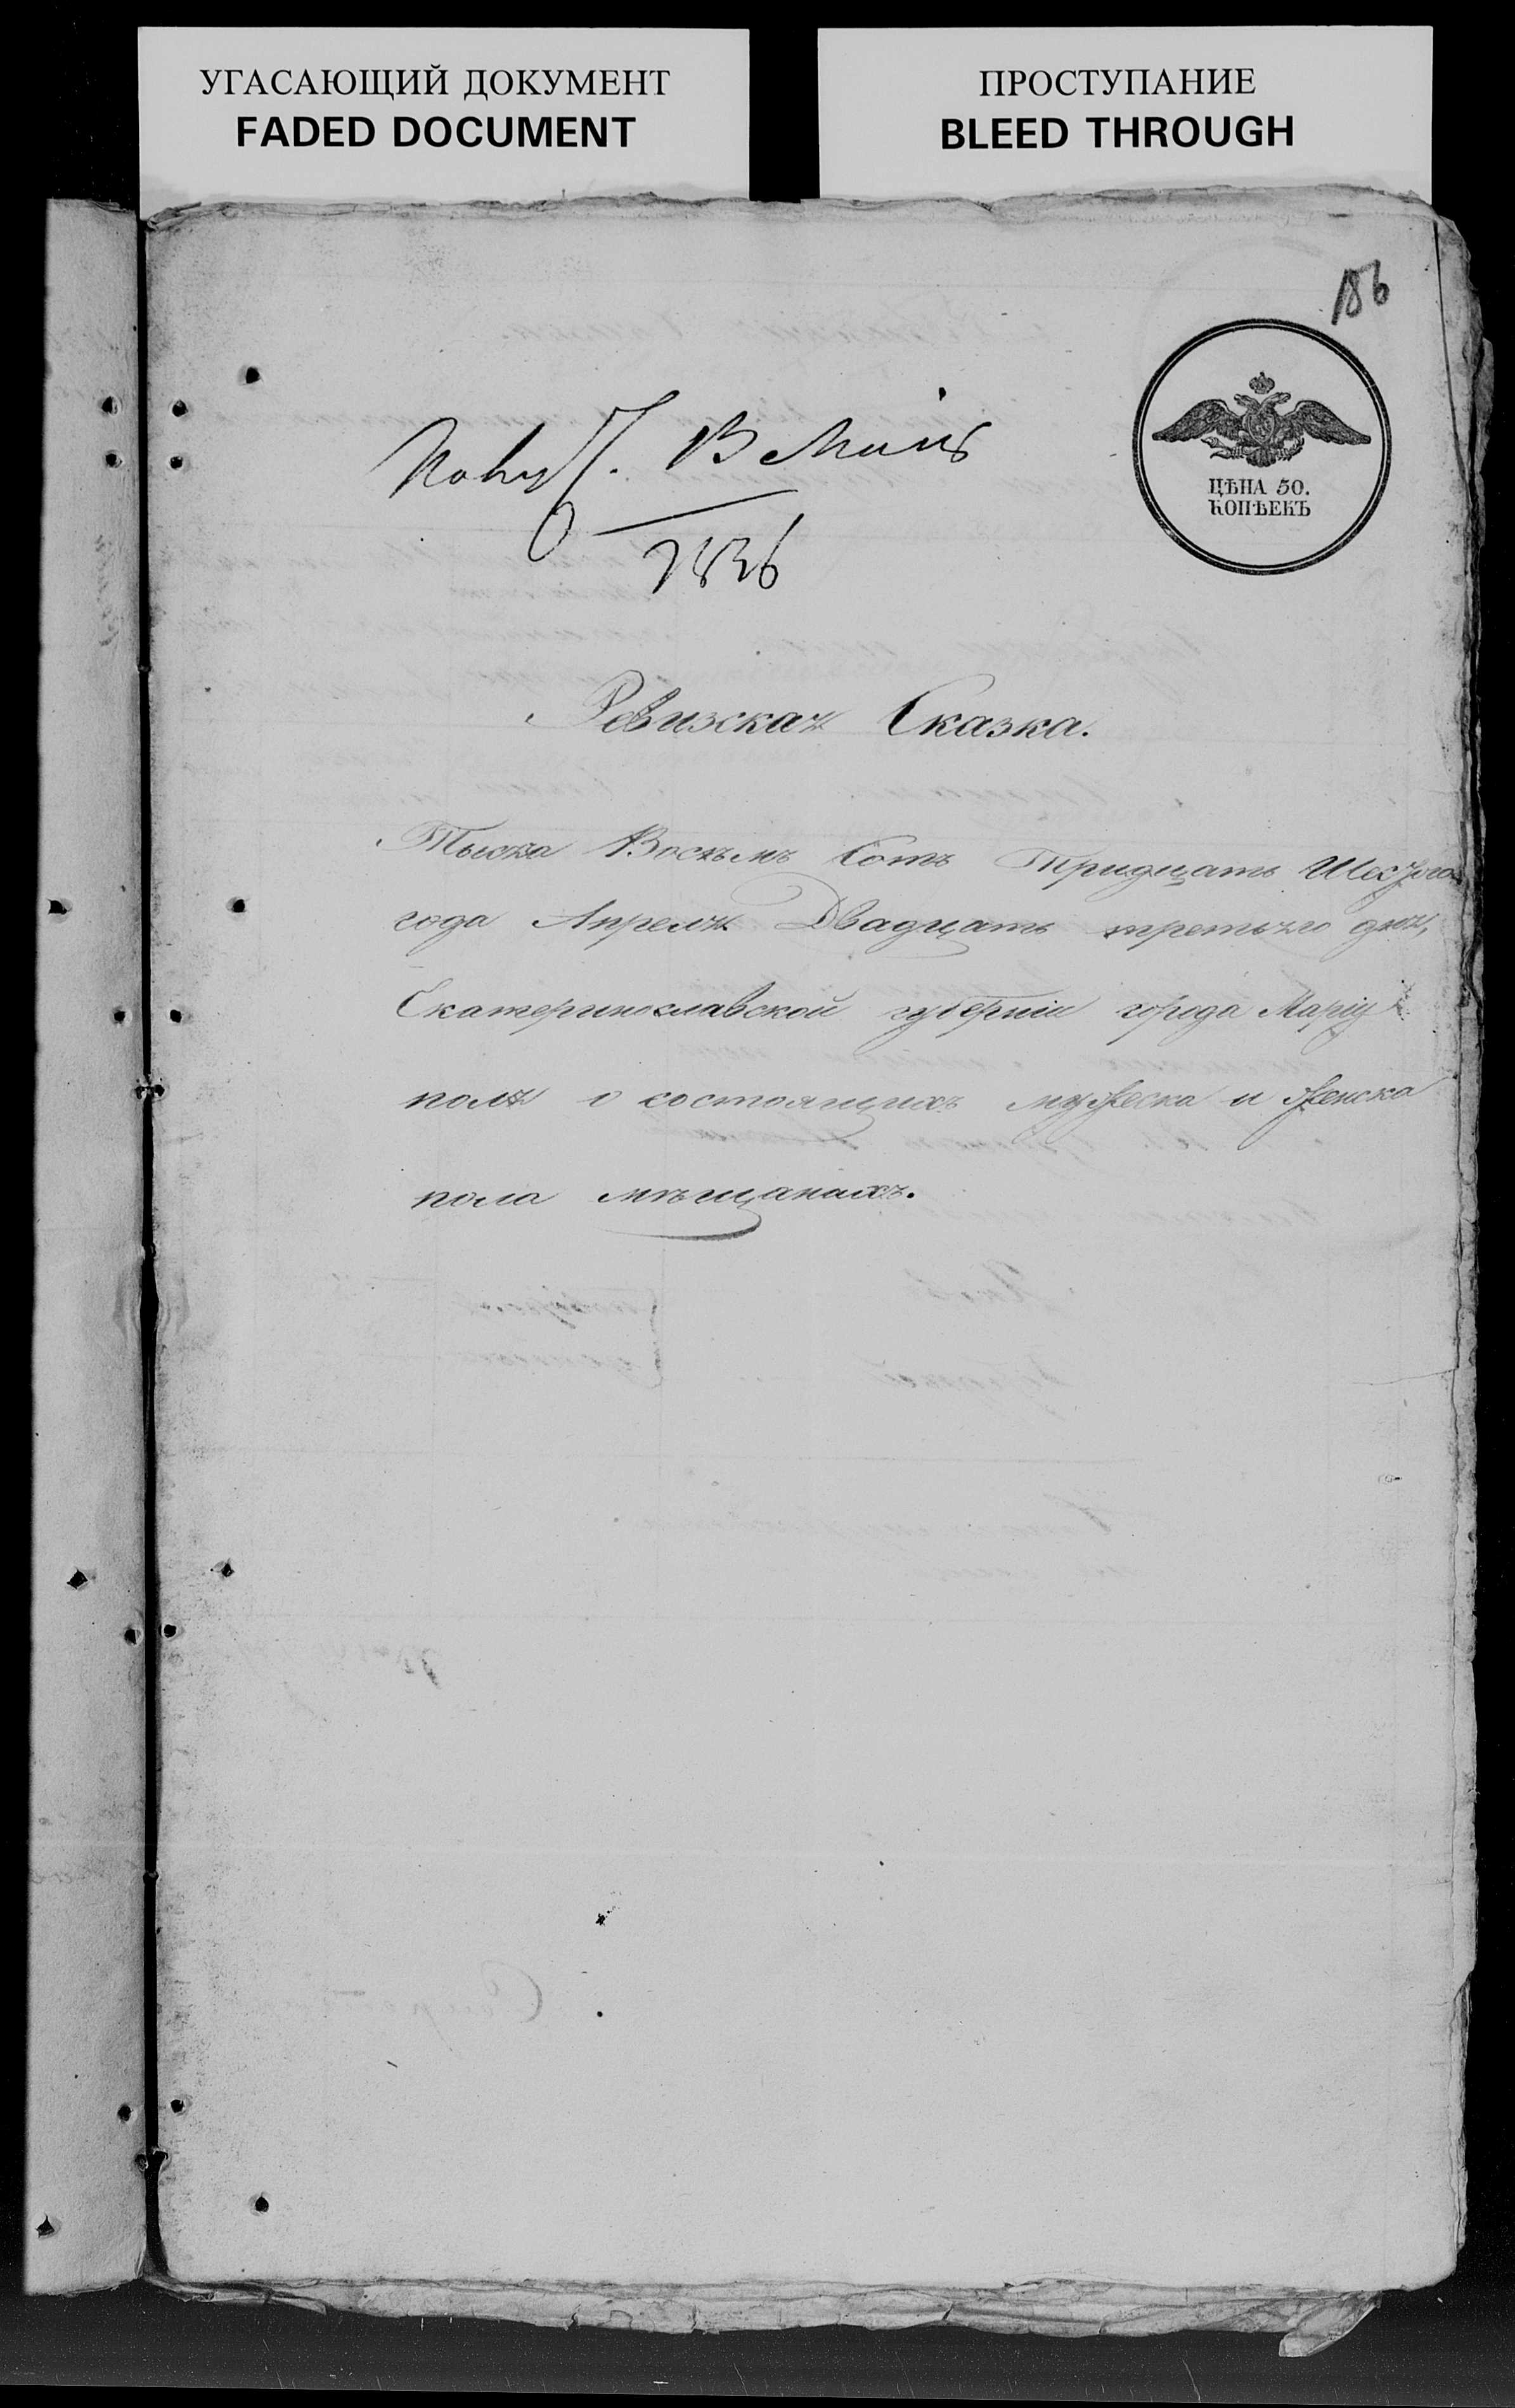 УГАСАЮЩИЙ ДОКУМЕНТ
FADED DOCUMENT
ПРОСТУПАНИЕ
BLEED THROUGH
186
ЦѢНА 50.
КОПѢЕКЪ
1836
Ревизская Сказка.
Тысяча Восемъ Сотъ Тридцать Шестого
года Апреля Двадцать третьяго дня,
Екатеринославской губерніи города Маріу
поля о состоящихъ мужеска и женска
пола мѣщанахъ.